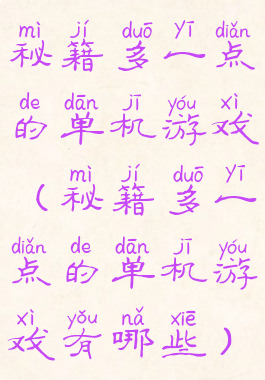 mì jí duō yī diǎn
秘籍多一点
de dān jī yóu xì
的单机游戏
mì jí duō yī
（秘籍多一
diǎn de dān jī yóu
点的单机游
xì yǒu nǎ xiē
戏有哪些）